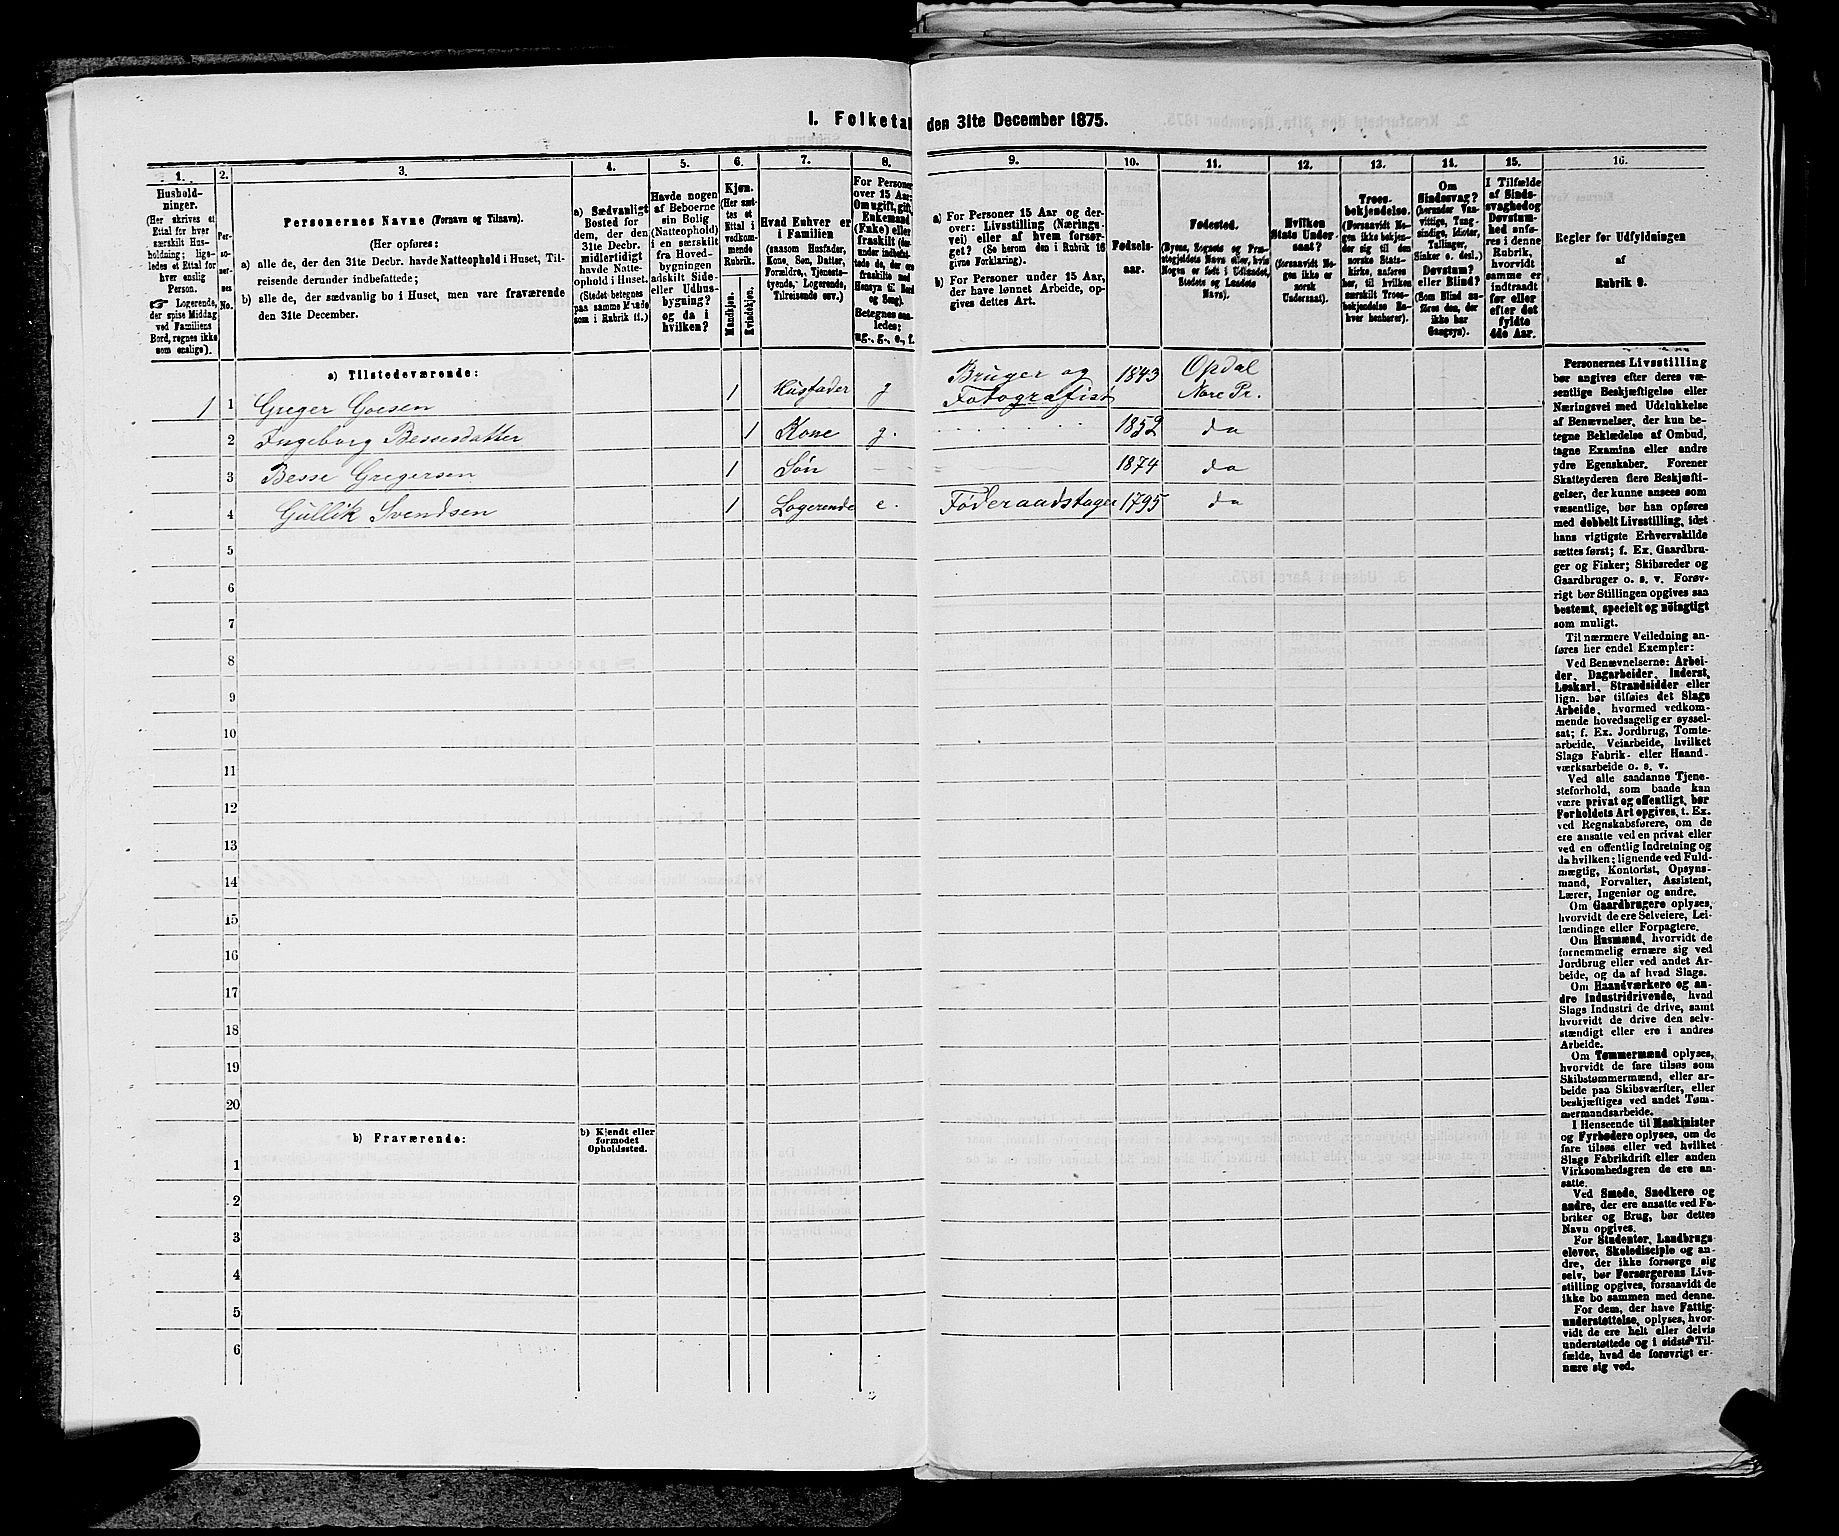 I. Folketal den 31te December 1875.
1.
Hushold-
ninger.
(Her skrives et
Ettal for hver
særskilt Hus-
holdning; lige-
ledes et Ettal for
hver enslig
Person.
☞ Logerende,
der spise Middag
ved Familiens
Bord, regnes ikke
som enslige).
2.
Per-
so-
ner-
nes
No.
3.
Personernes Navne (Fornavn og Tilnavn).
(Her opføres:
a) alle de, der den 31te Decbr. havde Natteophold i Huset, Til-
reisende derunder indbefattede;
b) alle de, der sædvanlig bo i Huset, men vare fraværende
den 31te December.
4.
a) Sædvanligt
Bosted for
dem, der den
31te Decbr.
midlertidigt
havde Natte-
ophold i Huset.
(Stedet betegnes
paa samme Maade
som i Rubrik 11.)
5.
Havde nogen
af Beboerne
sin Bolig
(Natteophold)
i en særskilt
fra Hoved-
bygningen
adskilt Side-
eller Udhus-
bygning?
og da i
hvilken?
6.
Kjøn.
(Her sæt-
tes et
Ettal i
vedkom-
mende
Rubrik.
Mandkjøn.
Kvindekjøn.
7.
Hvad Enhver er
i Familien
(saasom Husfader,
Kone, Søn, Datter,
Forældre, Tjeneste-
tyende, Logerende,
Tilreisende osv.)
8.
For Personer
over 15 Aar:
Om ugift, gift,
Enkemand
(Enke) eller
fraskilt (der-
under indbefat-
tede de, der ere
fraskilte med
Hensyn til Bord
og Seng).
Betegnes saa-
ledes:
ug., g., e., f.
9.
a) For Personer 15 Aar og der-
over: Livsstilling (Nærings-
vei) eller af hvem forsør-
get? (Se herom den i Rubrik 16
givne Forklaring).
b) For Personer under 15 Aar,
der have lønnet Arbeide, op-
gives dettes Art.
10.
Fødsels-
aar.
11.
Fødested.
(Byens, Sognets og Præ-
stegjeldets Navn eller, hvis
Nogen er født i Udlandet,
Stedets og Landets
Navn).
12.
Hvilken
Stats Under-
saat?
(forsaavidt No-
gen ikke er
norsk
Undersaat).
13.
Troes-
bekjendelse.
(Forsaavidt No-
gen ikke bekjen-
der sig til den
norske Stats-
kirke, anføres
her, til hvilken
særskilt Troes-
bekjendelse En-
hver henhører).
14.
Om
Sindssvag?
(herunder Van-
vittige, Tung-
sindige, Idioter,
Tullinger,
Sinker o. desl.)
Døvstum?
eller Blind?
(Som Blind an-
føres den, der
ikke har
Gangsyn).
15.
I Tilfælde
af Sinds-
svaghed og
Døvstum-
hed anfø-
res i denne
Rubrik,
hvorvidt
samme er
indtraadt
før eller
efter det
fyldte
4de Aar.
16.
Regler for Udfyldningen
af
Rubrik 9.
a) Tilstedeværende:
1 1 Greger Goesen 1 Husfader g Bruger og Fotografist 1843 Opdal Nore Pr.
2 Ingeborg Bessesdatter 1 Kone g. 1852 da
3 Besse Gregersen 1 Søn 1874 da
4 Gullik Svendsen 1 Logerende e. Føderaadstager 1795 da
5
6
7
8
9
10
11
12
13
14
15
16
17
18
19
20
b) Fraværende:
b) Kjendt eller
formodet
Opholdssted.
1
2
3
4
5
6
Personernes Livsstilling
bør angives efter deres væ-
sentlige Beskjæftigelse eller
Næringsvei med Udelukkelse
af Benævnelser, der kun be-
tegne Beklædelse af Ombud,
tagne Examina eller andre
ydre Egenskaber. Forener
Skatteyderen flere Beskjæfti-
gelser, der kunne ansees som
væsentlige, bør han opføres
med dobbelt Livsstilling, idet
hans vigtigste Erhvervskilde
sættes først; f. Ex. Gaardbru-
ger og Fisker; Skibsreder og
Gaardbruger o. s. v. Forøv-
rigt bør Stillingen opgives saa
bestemt, specielt og nøiagtigt
som muligt.
Til nærmere Veiledning an-
føres her endel Exempler:
Ved Benævnelserne: Arbei-
der, Dagarbeider, Inderst,
Løskarl, Strandsidder eller
lign. bør tilføies det Slags
Arbeide, hvormed vedkom-
mende hovedsagelig er syssel-
sat; f. Ex. Jordbrug, Tomte-
arbeide, Veiarbeide, hvilket
Slags Fabrik- eller Haand-
værksarbeide o. s. v.
Ved alle saadanne Tjene-
steforhold, som baade kan
være privat og offentligt, bør
Forholdets Art opgives, t. Ex.
ved Regnskabsførere, om de
ere ansatte ved en privat eller
ved en offentlig Indretning og
da hvilken; lignende ved Fuld-
mægtig, Kontorist, Opsyns-
mand, Forvalter, Assistent,
Lærer, Ingeniør og andre.
Om Gaardbrugere oplyses,
hvorvidt de ere Selveiere, Lei-
lændinge eller Forpagtere.
Om Husmænd, hvorvidt de
fornemmelig ernære sig ved
Jordbrug eller ved andet Ar-
beide, og da af hvad Slags.
Om Haandværkere og an-
dre Industridrivende, hvad
Slags Industri de drive, samt
hvorvidt de drive den selv-
stændigt eller ere i andres
Arbeide.
Om Tømmermænd oplyses,
hvorvidt de fare tilsøs som
Skibstømmermænd, eller ar-
beide paa Skibsværfter, eller
beskjæftiges ved andet Tøm-
mermandsarbeide.
I Henseende til Maskinister
og Fyrbødere oplyses, om de
fare tilsøs eller ved hvilket
Slags Fabrikdrift eller anden
Virksomhedsgren de ere an-
satte.
Ved Smede, Snedkere og
andre, der ere ansatte ved Fa-
briker og Brug, bør dettes
Navn opgives.
For Studenter, Landbrugs-
elever, Skoledisciple og an-
dre, der ikke forsørge sig
selv, bør Forsørgerens Livs-
stilling opgives, forsaavidt de
ikke bo sammen med denne.
For dem, der have Fattig-
understøttelse, oplyses, hvor-
vidt de ere helt eller delvis
understøttede og i sidste Til-
fælde, hvad de forøvrigt er-
nære sig ved.